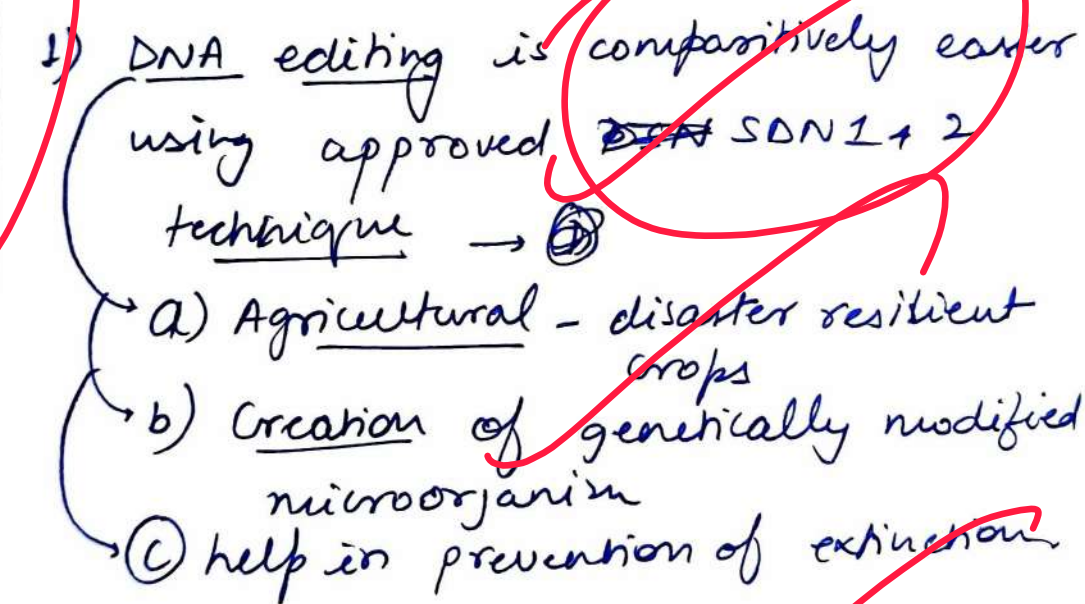 1) DNA editing is comparitively easier
using approved SDN 1 + 2
technique →
a) Agricultural - disaster resilient
crops
b) Creation of genetically modified
microorganism
c) help in prevention of extinction